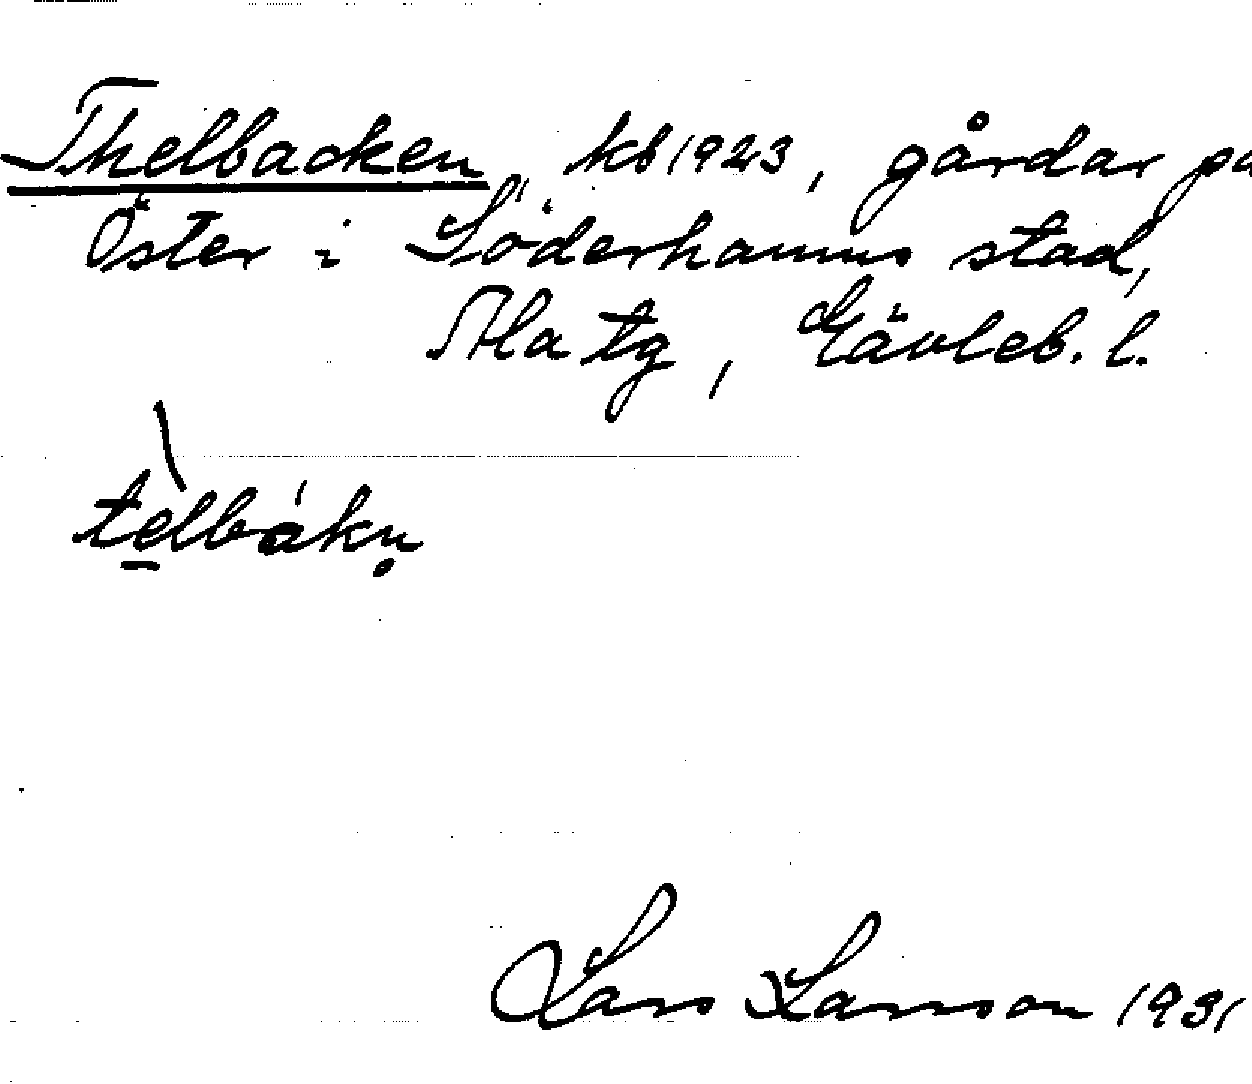 Thelbacken, kb 1923, gårdar på
Öster i Söderhamns stad,
Ala tg, Gävleb. l.
telbákn̥
Lars Larsson 1931